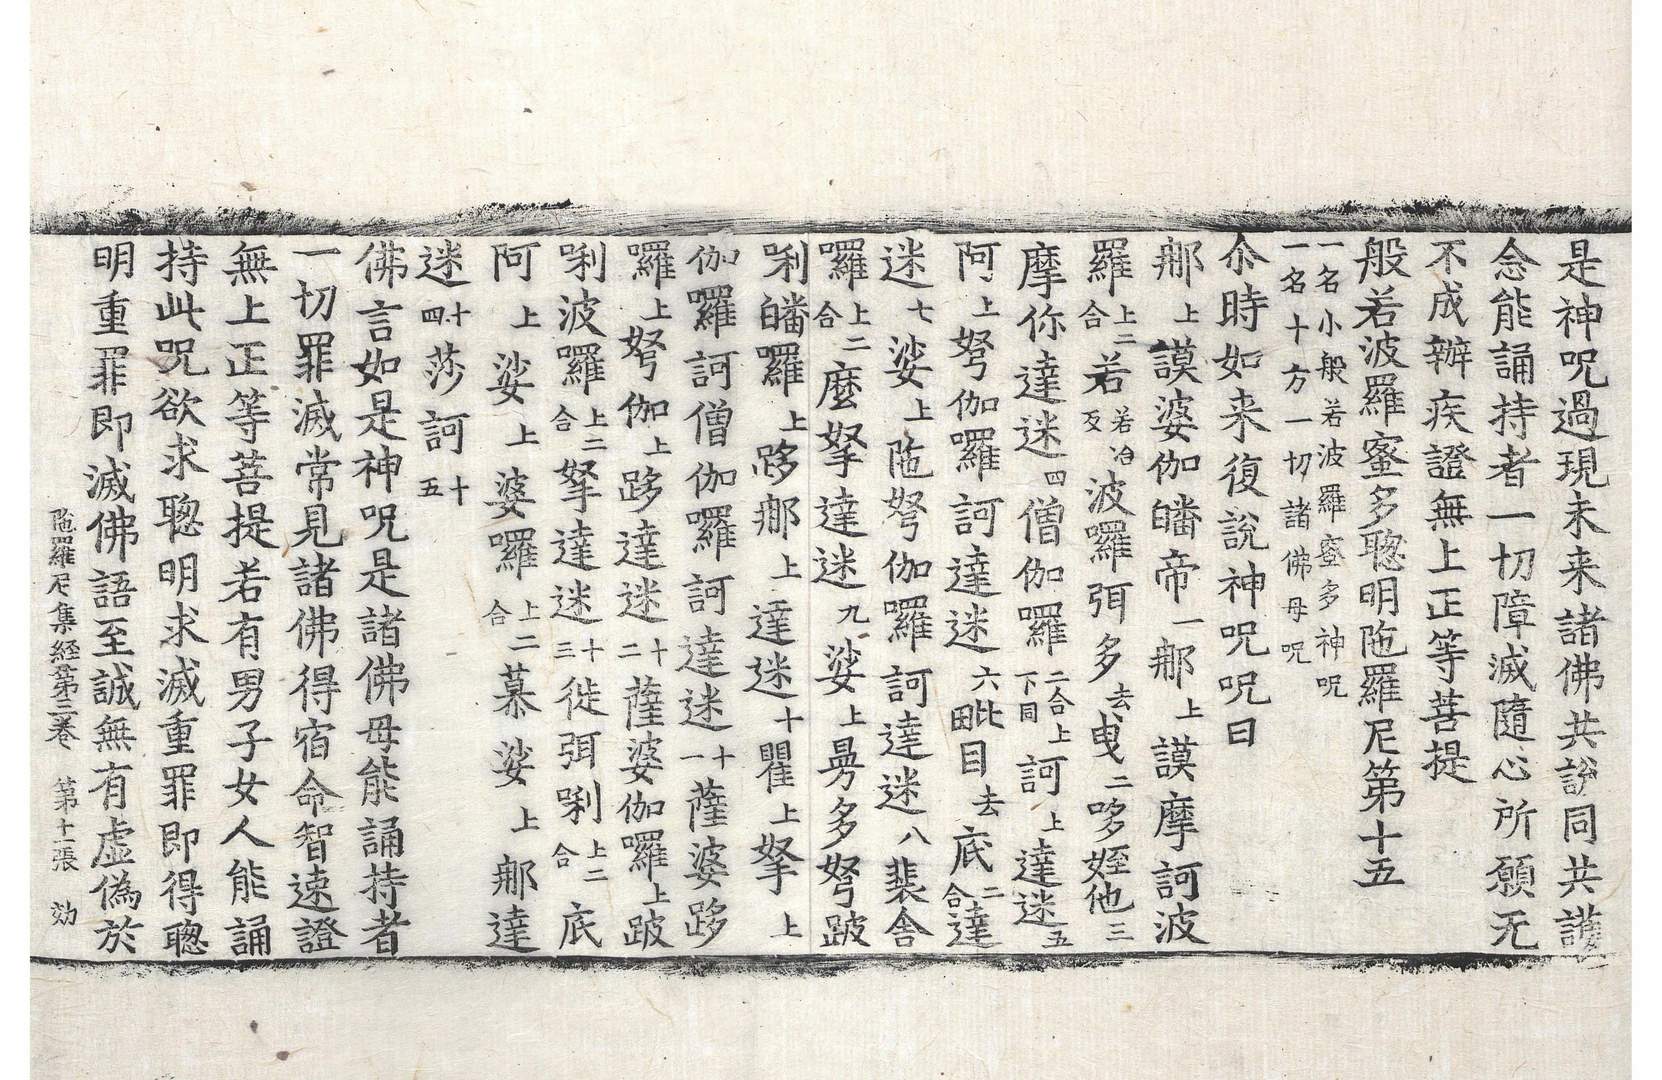 是神呪過現未来諸佛共說同共護
念能誦持者一切障滅隨心所願无
不成辦疾證無上正等菩提
般若波羅蜜多聰明陁羅尼第十五
一名小般若波羅蜜多神呪
一名十方一切諸佛母呪
尒時如来復說神呪呪曰
那上謨婆伽皤帝一那上謨摩訶波
羅上二合若若冶反波囉弭多去曳二哆姪他三
摩你達迷四僧伽囉二合上下同訶上達迷五
阿上弩伽囉訶達迷六毗目去底二合達
迷七娑上陁弩伽囉訶達迷八裴舍
囉上二合麼拏達迷九娑上勇多弩跛
唎皤羅上跢那上達迷十瞿上拏上
伽囉訶僧伽囉訶達迷十一薩婆跢
囉上弩伽上跢達迷十二薩婆伽囉上跛
唎波囉上二合拏達迷十三徙弭唎上二合底
阿上娑上婆囉上二合慕娑上那達
迷十四莎訶十五
佛言如是神呪是諸佛母能誦持者
一切罪滅常見諸佛得宿命智速證
無上正等菩提若有男子女人能誦
持此呪欲求聰明求滅重罪即得聰
明重罪即滅佛語至誠無有虛偽於
陁羅尼集経第三卷 第十二張 効